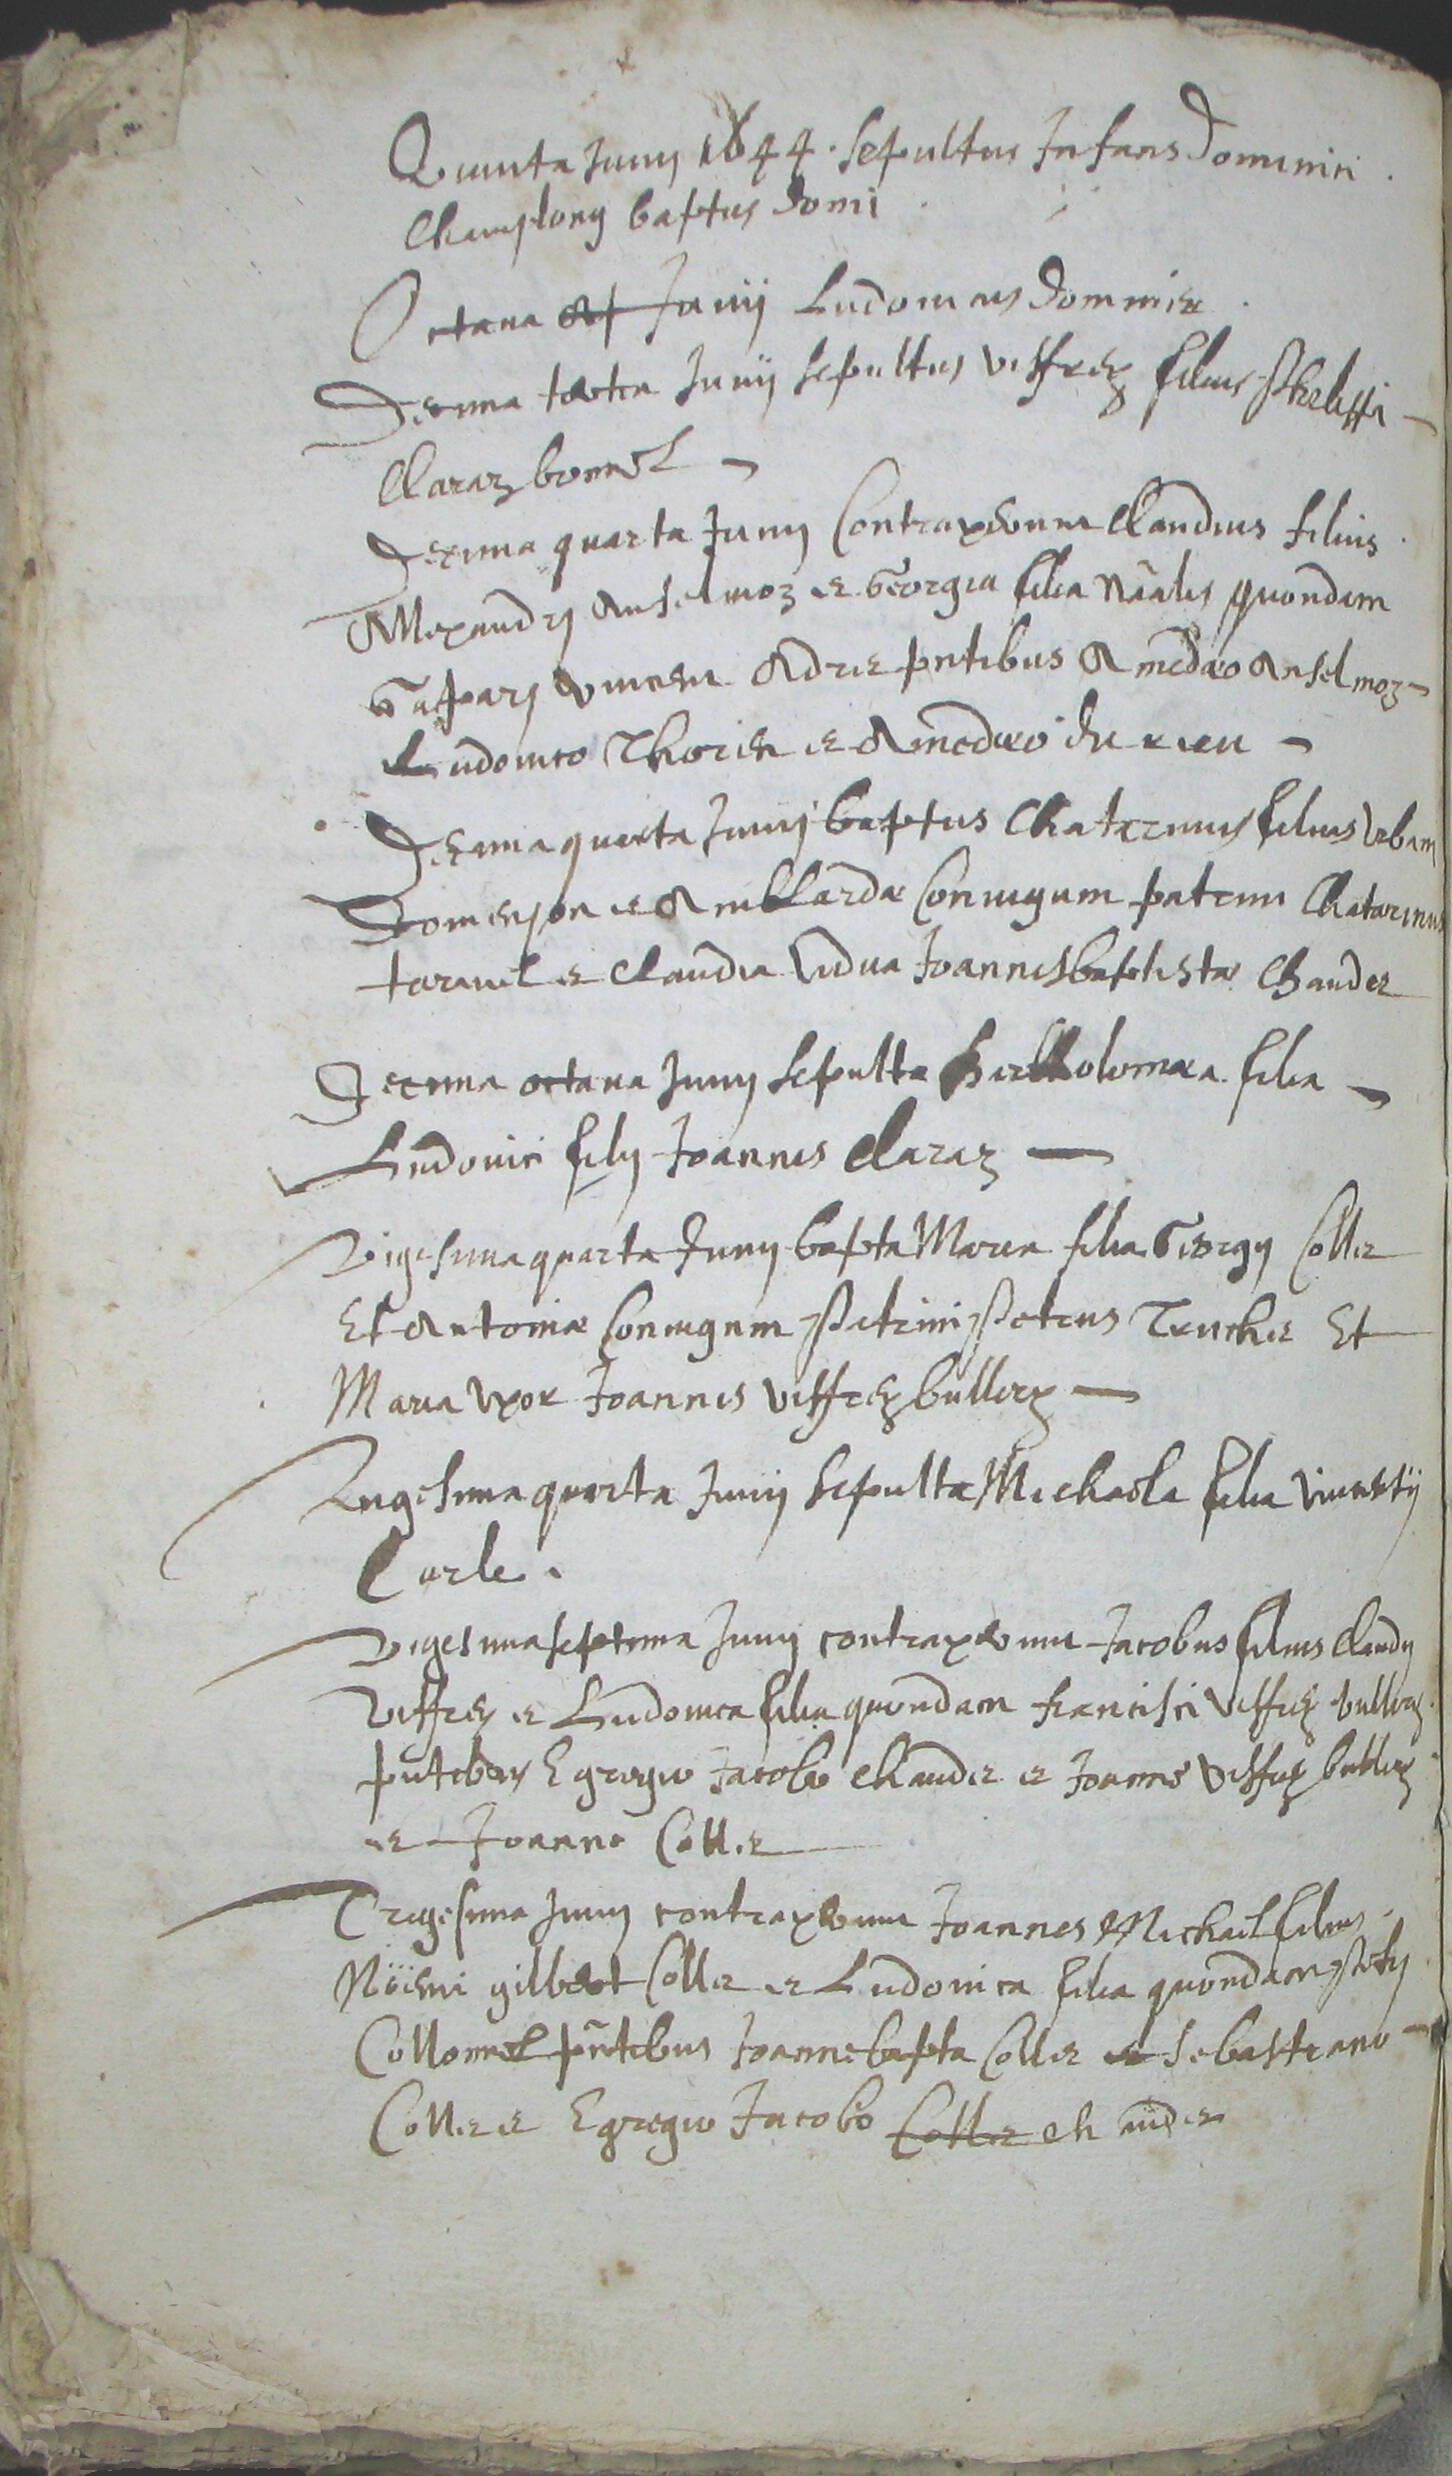 Quinta Junij 1644. sepultus Infans Dominici
Champlong baptus domi
Octaua Junij Ludouicus Dominici
Decima tertia Junij sepultus Viffrey filius Philippi
Claraz bonnel
Decima quarta Junij Contraxerunt Claudius filius
Allexandrj Anselmoz et Georgia filia nãalis quondam
Gasparj Vincent pntibus Amedeo Anselmoz
Ludouico Thorin et Amedeo du rieu
Decima quarta Junij baptus Chatarinus filius Vrbani
Domenjon et Amblardæ Coniugum patrini Chatarinus
et Claudia vidua Joannisbaptistæ Chaudet
Decima octaua Junij Sepulta Bartholomæa filia
Ludouici filij Joannis Claraz
Vigesima quarta Junij bapta Maria filia Georgij Collet
Et Antoniæ Coniugum Patrini Petrus Truchet Et
Maria vxor Joannis Viffrey bullierz
Vigesima quarta Junij Sepulta Michaela filia Vincentij
Carle.
Vigesima septima Junij contraxerunt Jacobus filius Claudij
Viffrey et Ludouica filia quondam francisci Viffrey bullierz
pntibus Egregio Jacobo Chaudet et Joanne Viffrey bullierz
et Joanne Collet
Trigesima Junij contraxerunt Joannes Michael filius
gilbert Collet et Ludouica filia quondam Petrj
Collomel pñtibus Joannebapta Collet et Sebastiano
Collet et Egregio Jacobo Collet chaudet